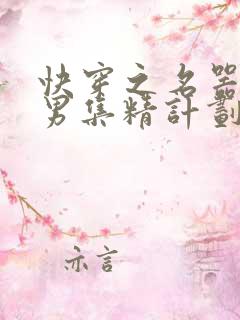 快穿之名器
男集精計劃
示言